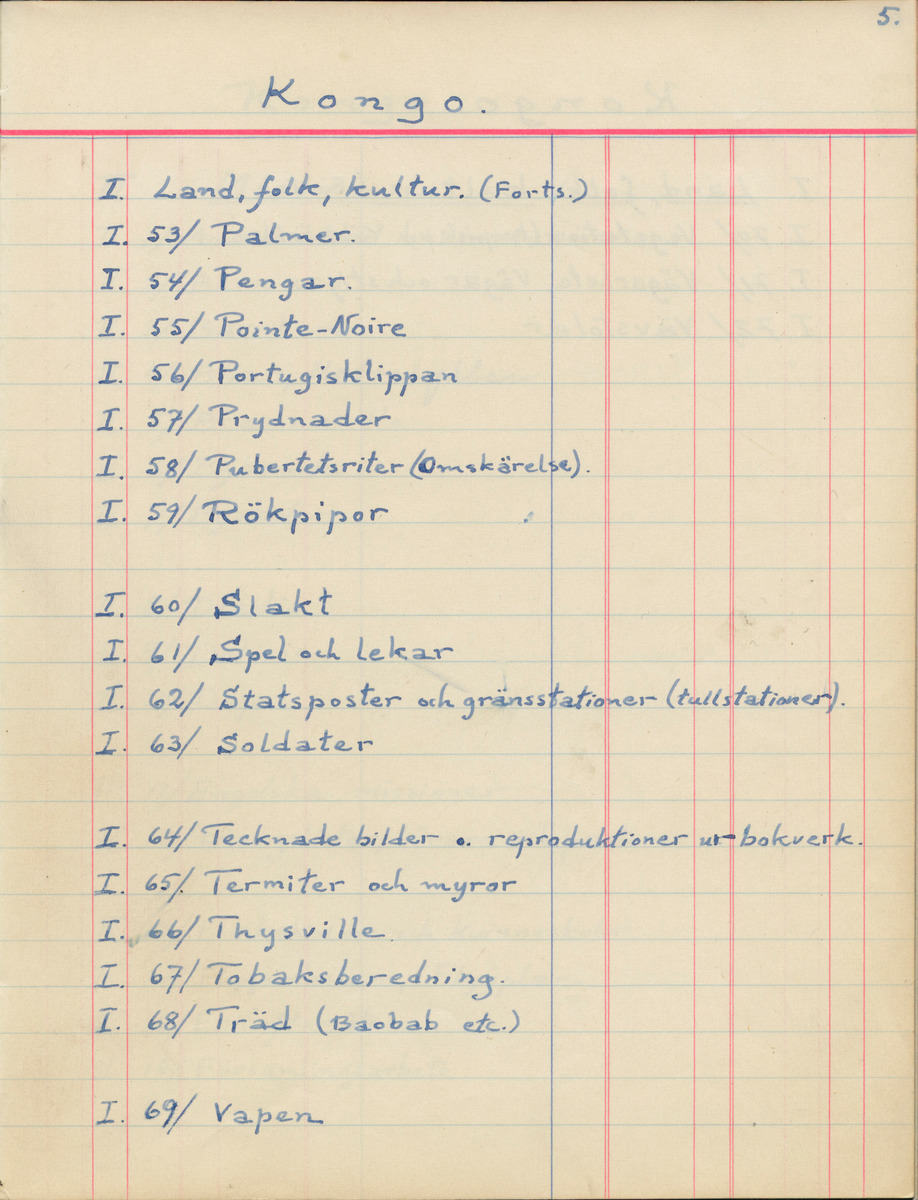 5.
Kongo.
I. Land, folk, kultur. (Forts.)
I. 53/ Palmer.
I. 54/ Pengar.
I. 55/ Pointe-Noire
I. 56/ Portugisklippan
I. 57/ Prydnader
I. 58/ Pubertetsriter (Omskärelse).
I. 59/ Rökpipor
I. 60/ Slakt
I. 61/ Spel och lekar
I. 62/ Statsposter och gränsstationer (tullstationer).
I. 63/ Soldater
I. 64/ Tecknade bilder o. reproduktioner ur bokverk.
I. 65/. Termiter och myror
I. 66/ Thysville
I. 67/ Tobaksberedning.
I. 68/ Träd (Baobab etc.)
I. 69/ Vapen